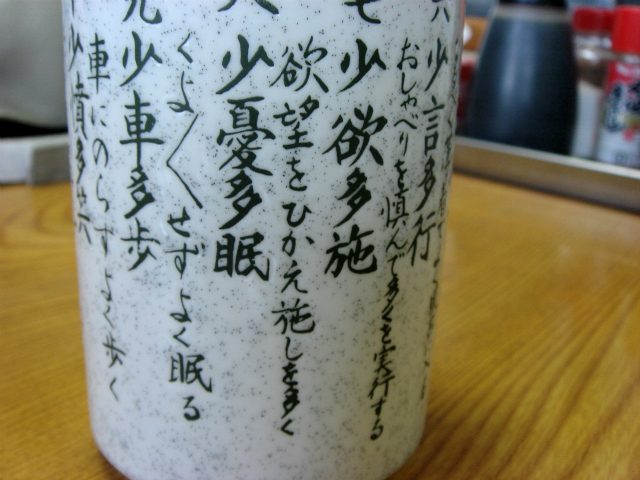 六 少言多行
おしゃべりを慎んで多くを実行する
七 少欲多施
欲望をひかえ施しを多く
八 少憂多眠
くよ〱せずよく眠る
九 少車多歩
車にのらずよく歩く
少憤多笑